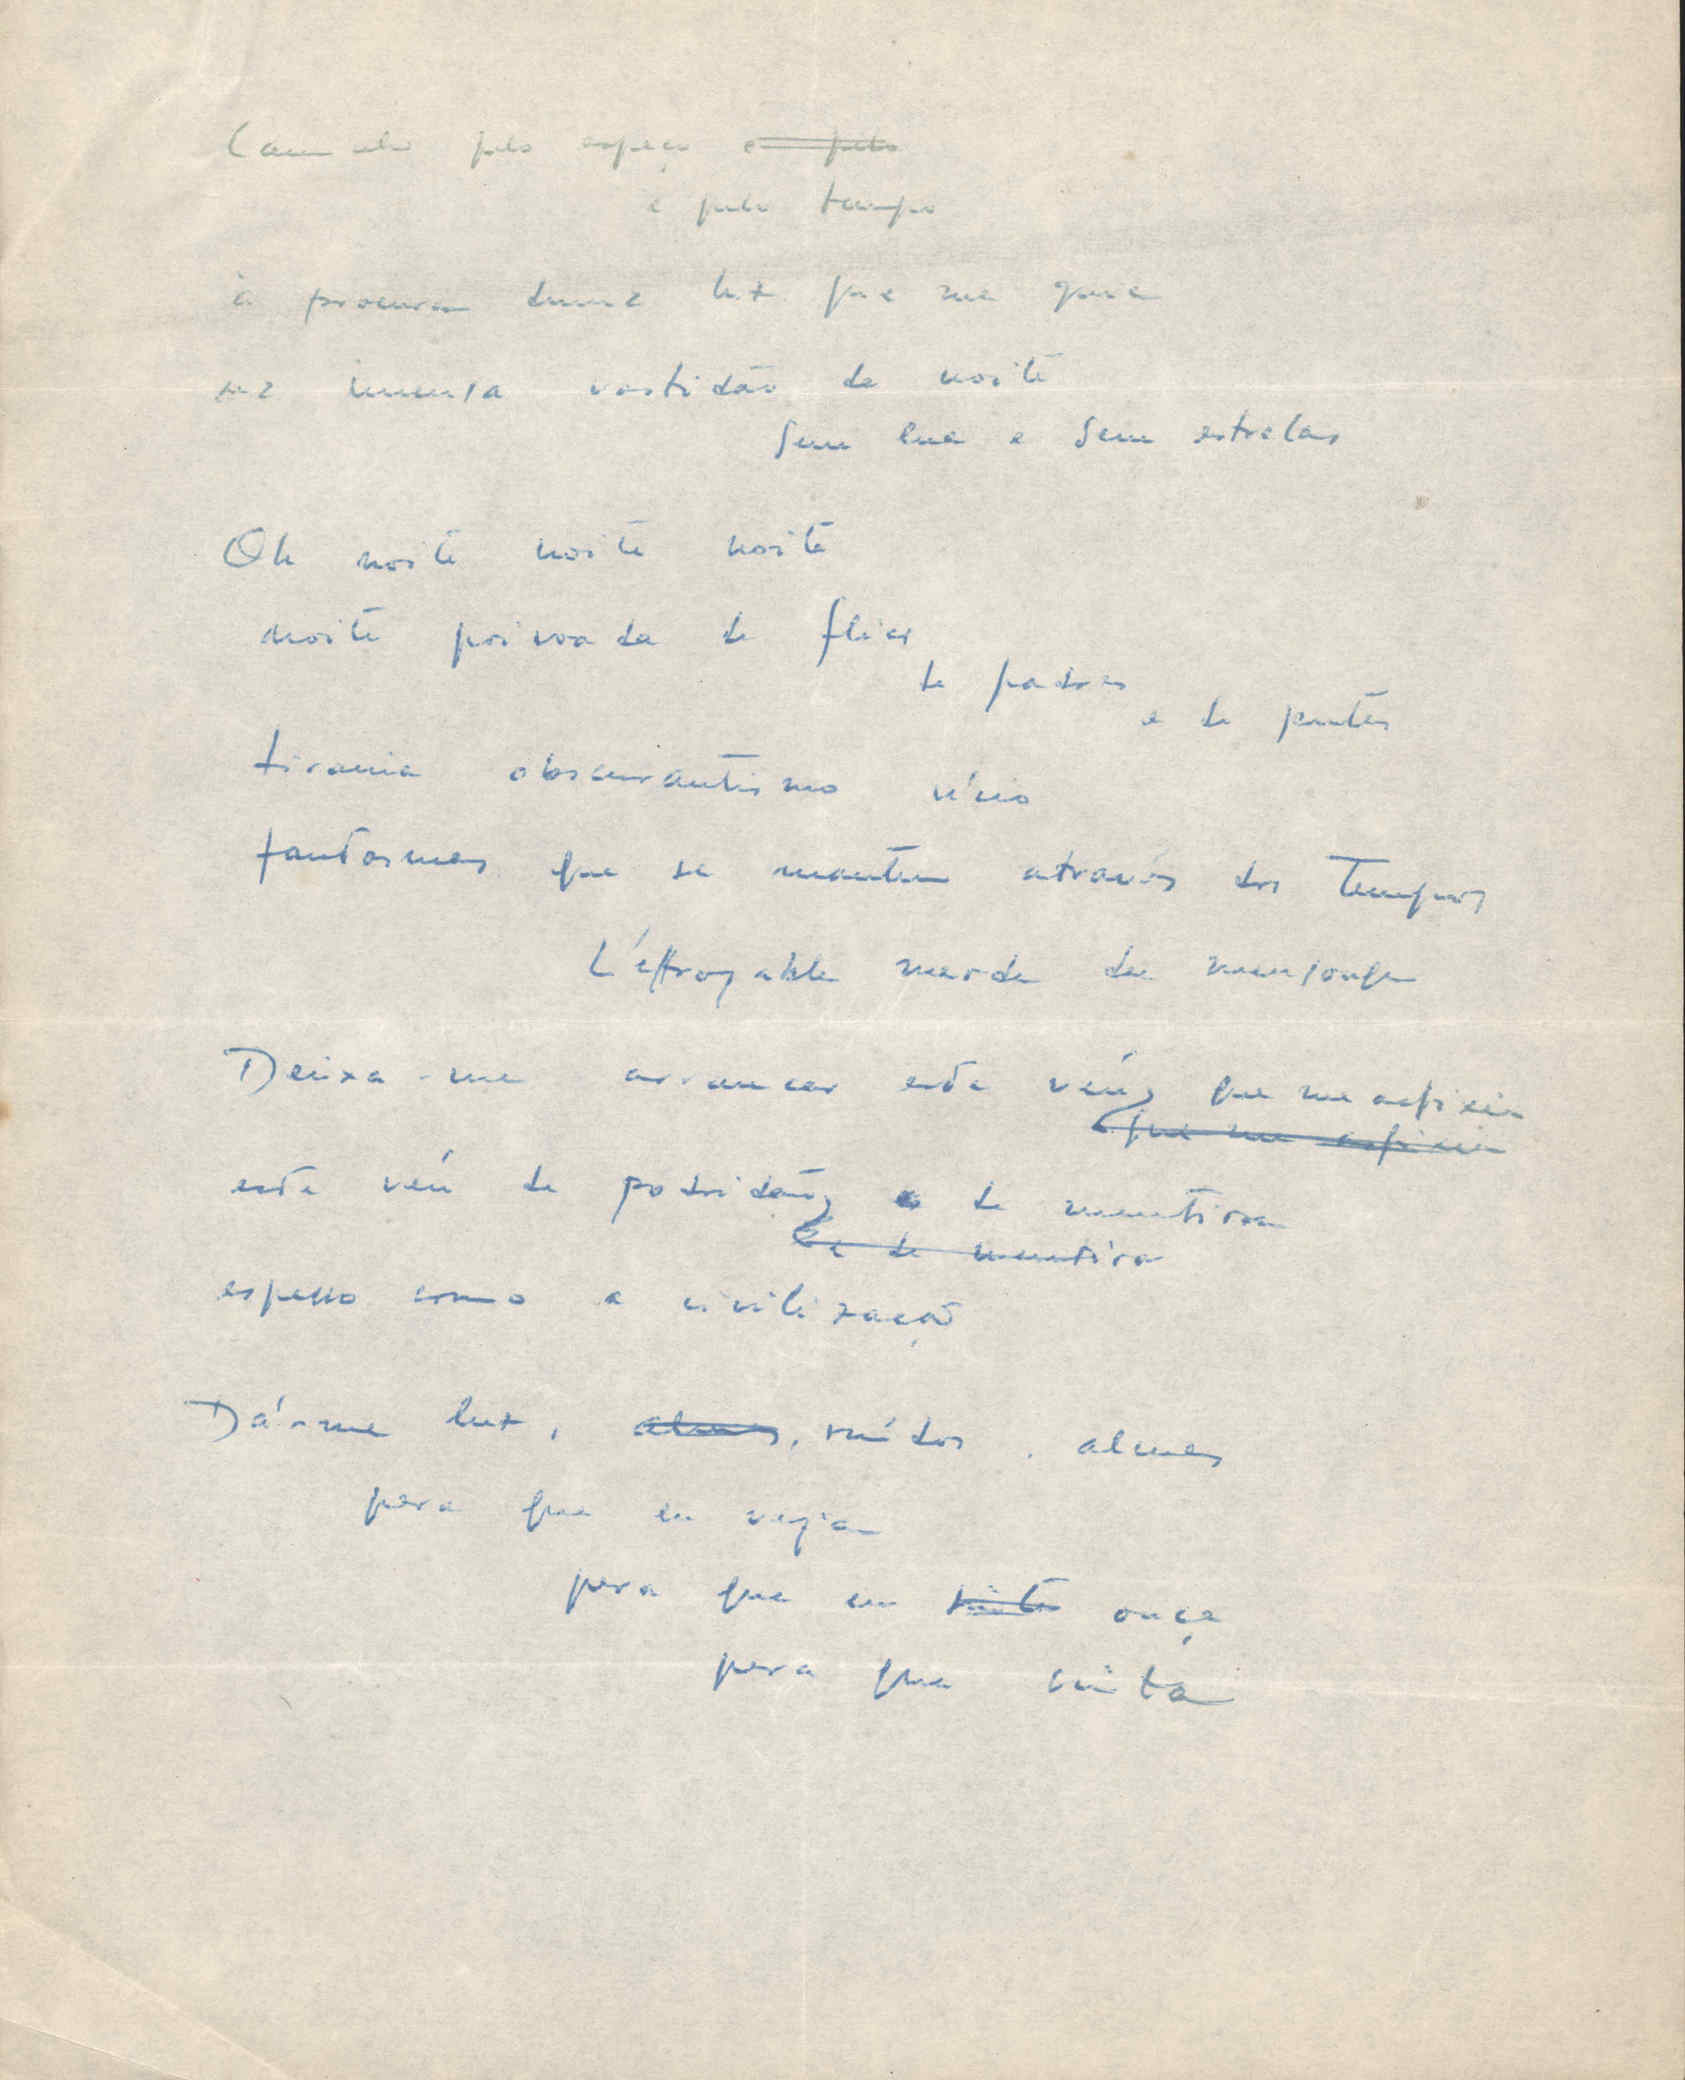 Caminho pelo espaço e pelo
e pelo tempo
à procura duma luz que me guie
na imensa vastidão da noite
Sem lua e Sem estrelas
Oh noite noite noite
noite privada de flics
de padres
e de putas
tirania obscurantismo vício
fantasmas que se mantem através dos Tempos
L'éffroyable merde du mensonge
Deixa-me arrancar este véu, que me asfixia
que me asfixia
este véu de podridão, e de mentira
e de mentira
espesso como a civilização
Dá-me luz, almas, ruídos, almas
para que eu veja
para que eu sinta ouça
para que sinta